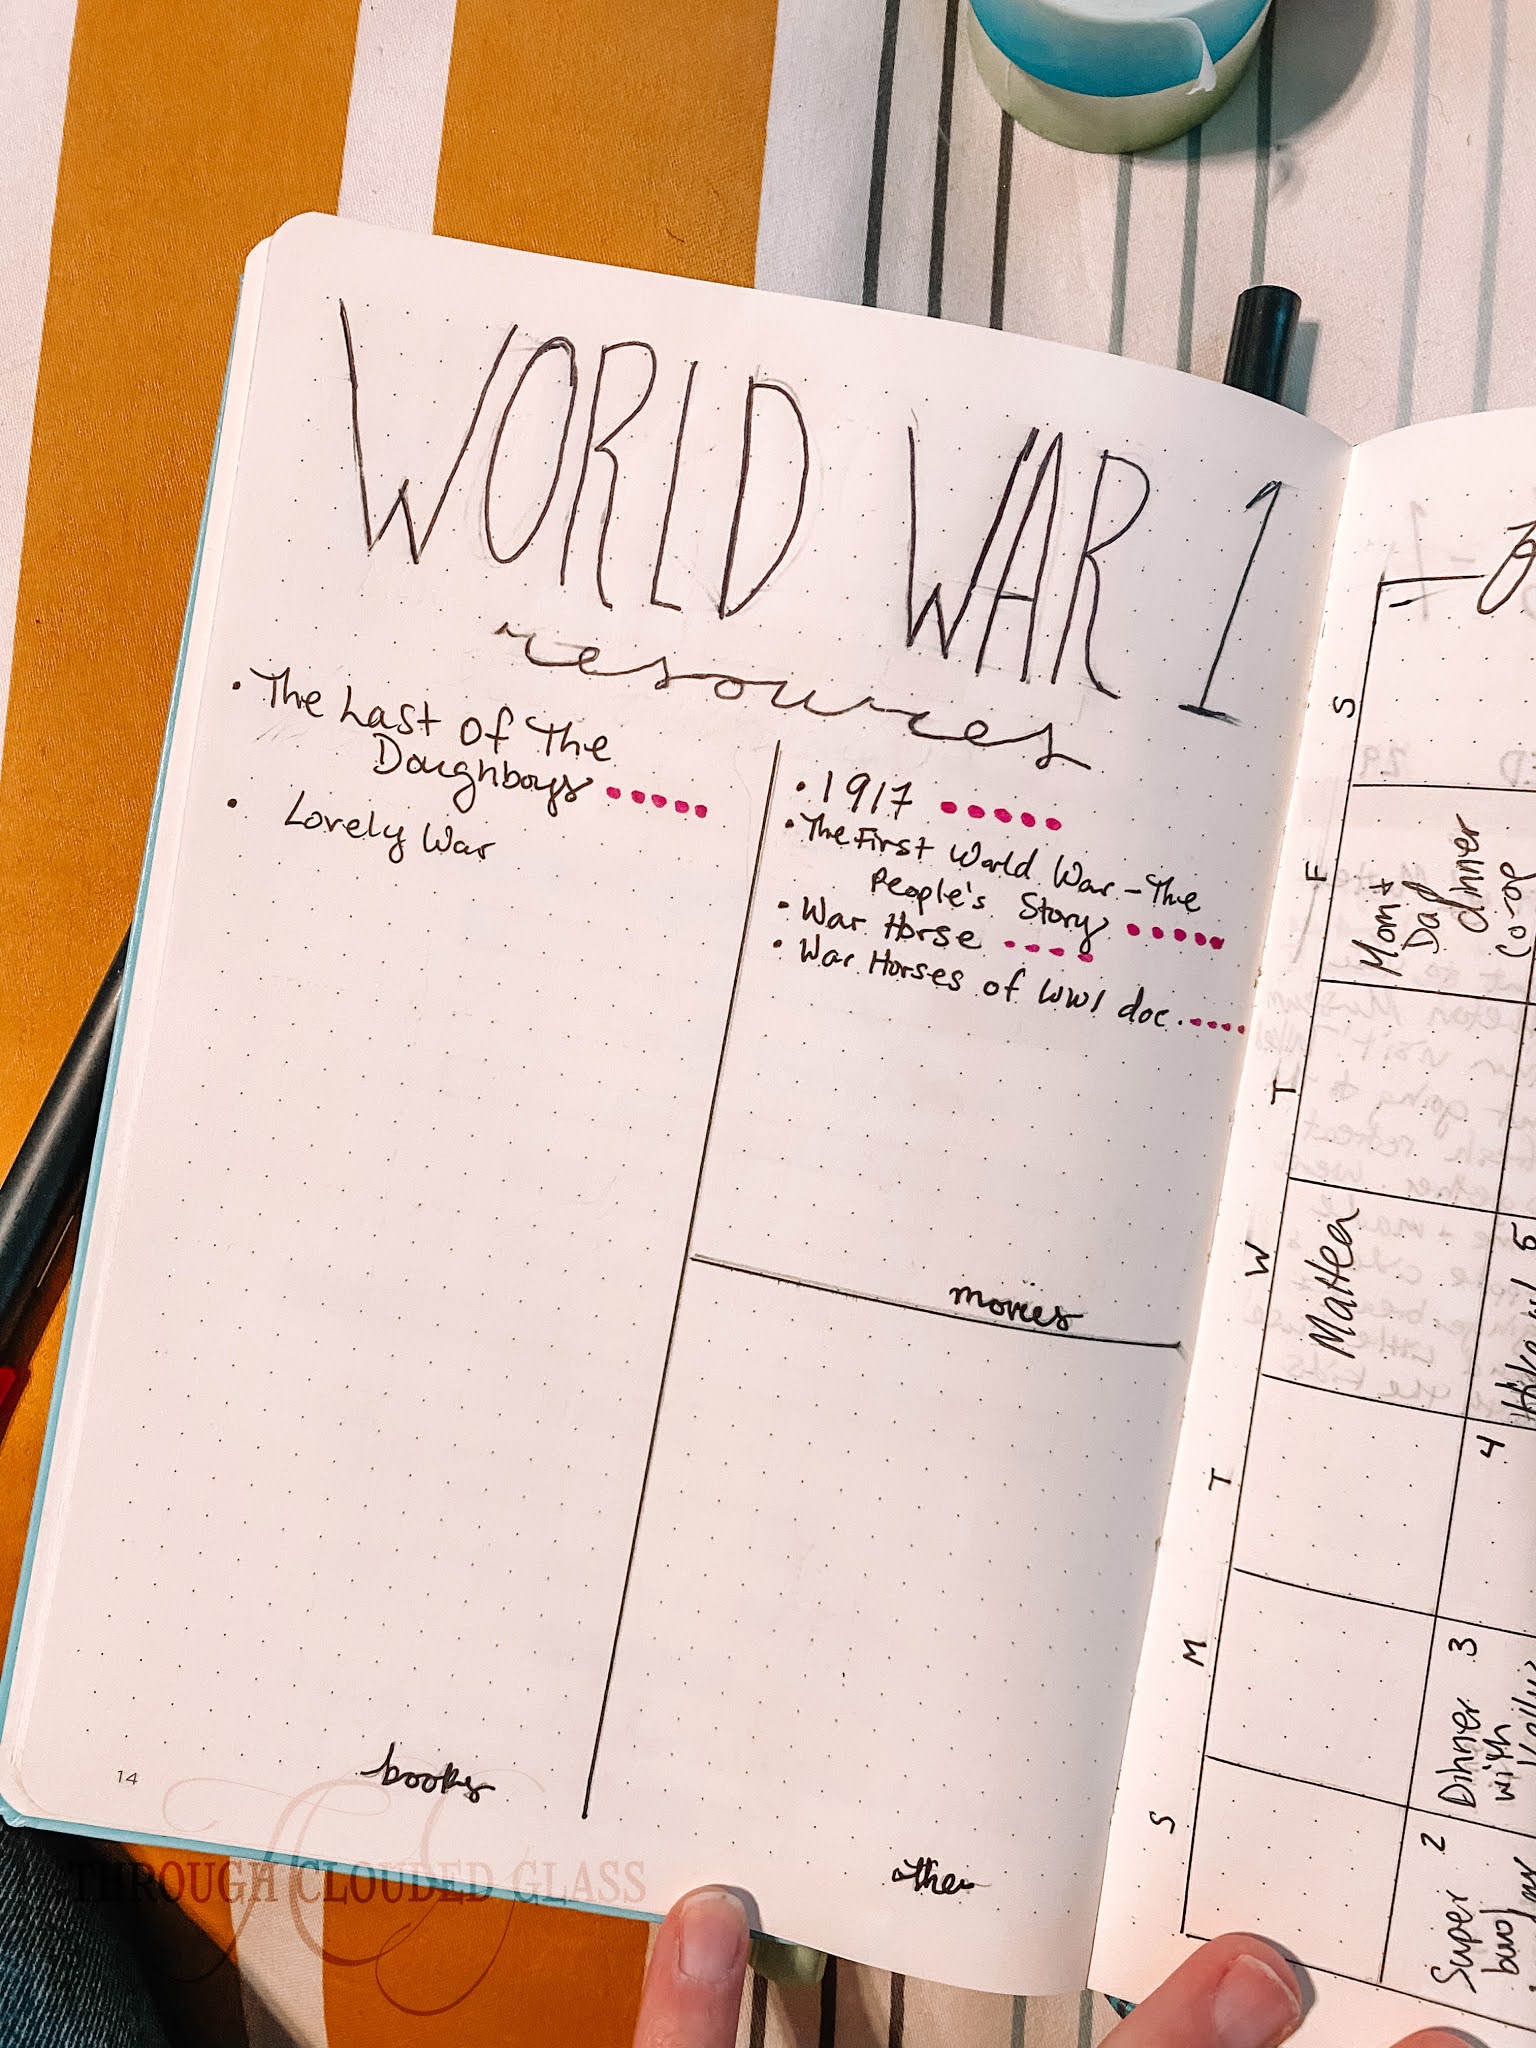 WORLD WAR 1
resources
• The Last of The
Doughboys
• Lovely War
books
• 1917
• The First World War - The
People's Story
• War Horse
• War Horses of WW1 doc.
movies
other
14
THROUGH CLOUDED GLASS
S
F
T
W
T
M
S
Mom +
Dad
dinner
Co-op
Mattea
5
4
3
Dinner
with
2
Super
bowl